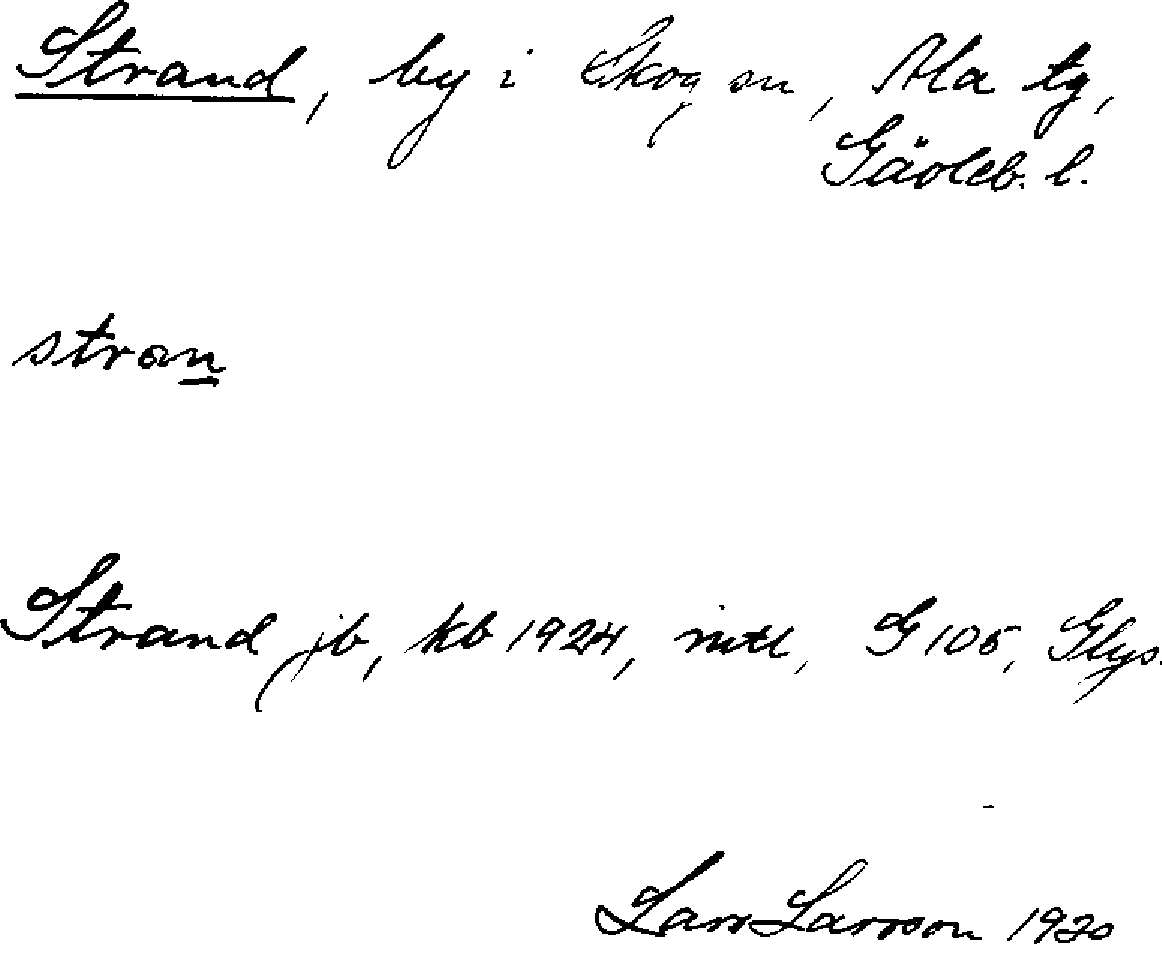 Strand, by i Skog sn, Ala tg,
Gävleb. l.
stran
Strand jb, kb 1924, mtl, G 105, Glys.
Lars Larsson 1930